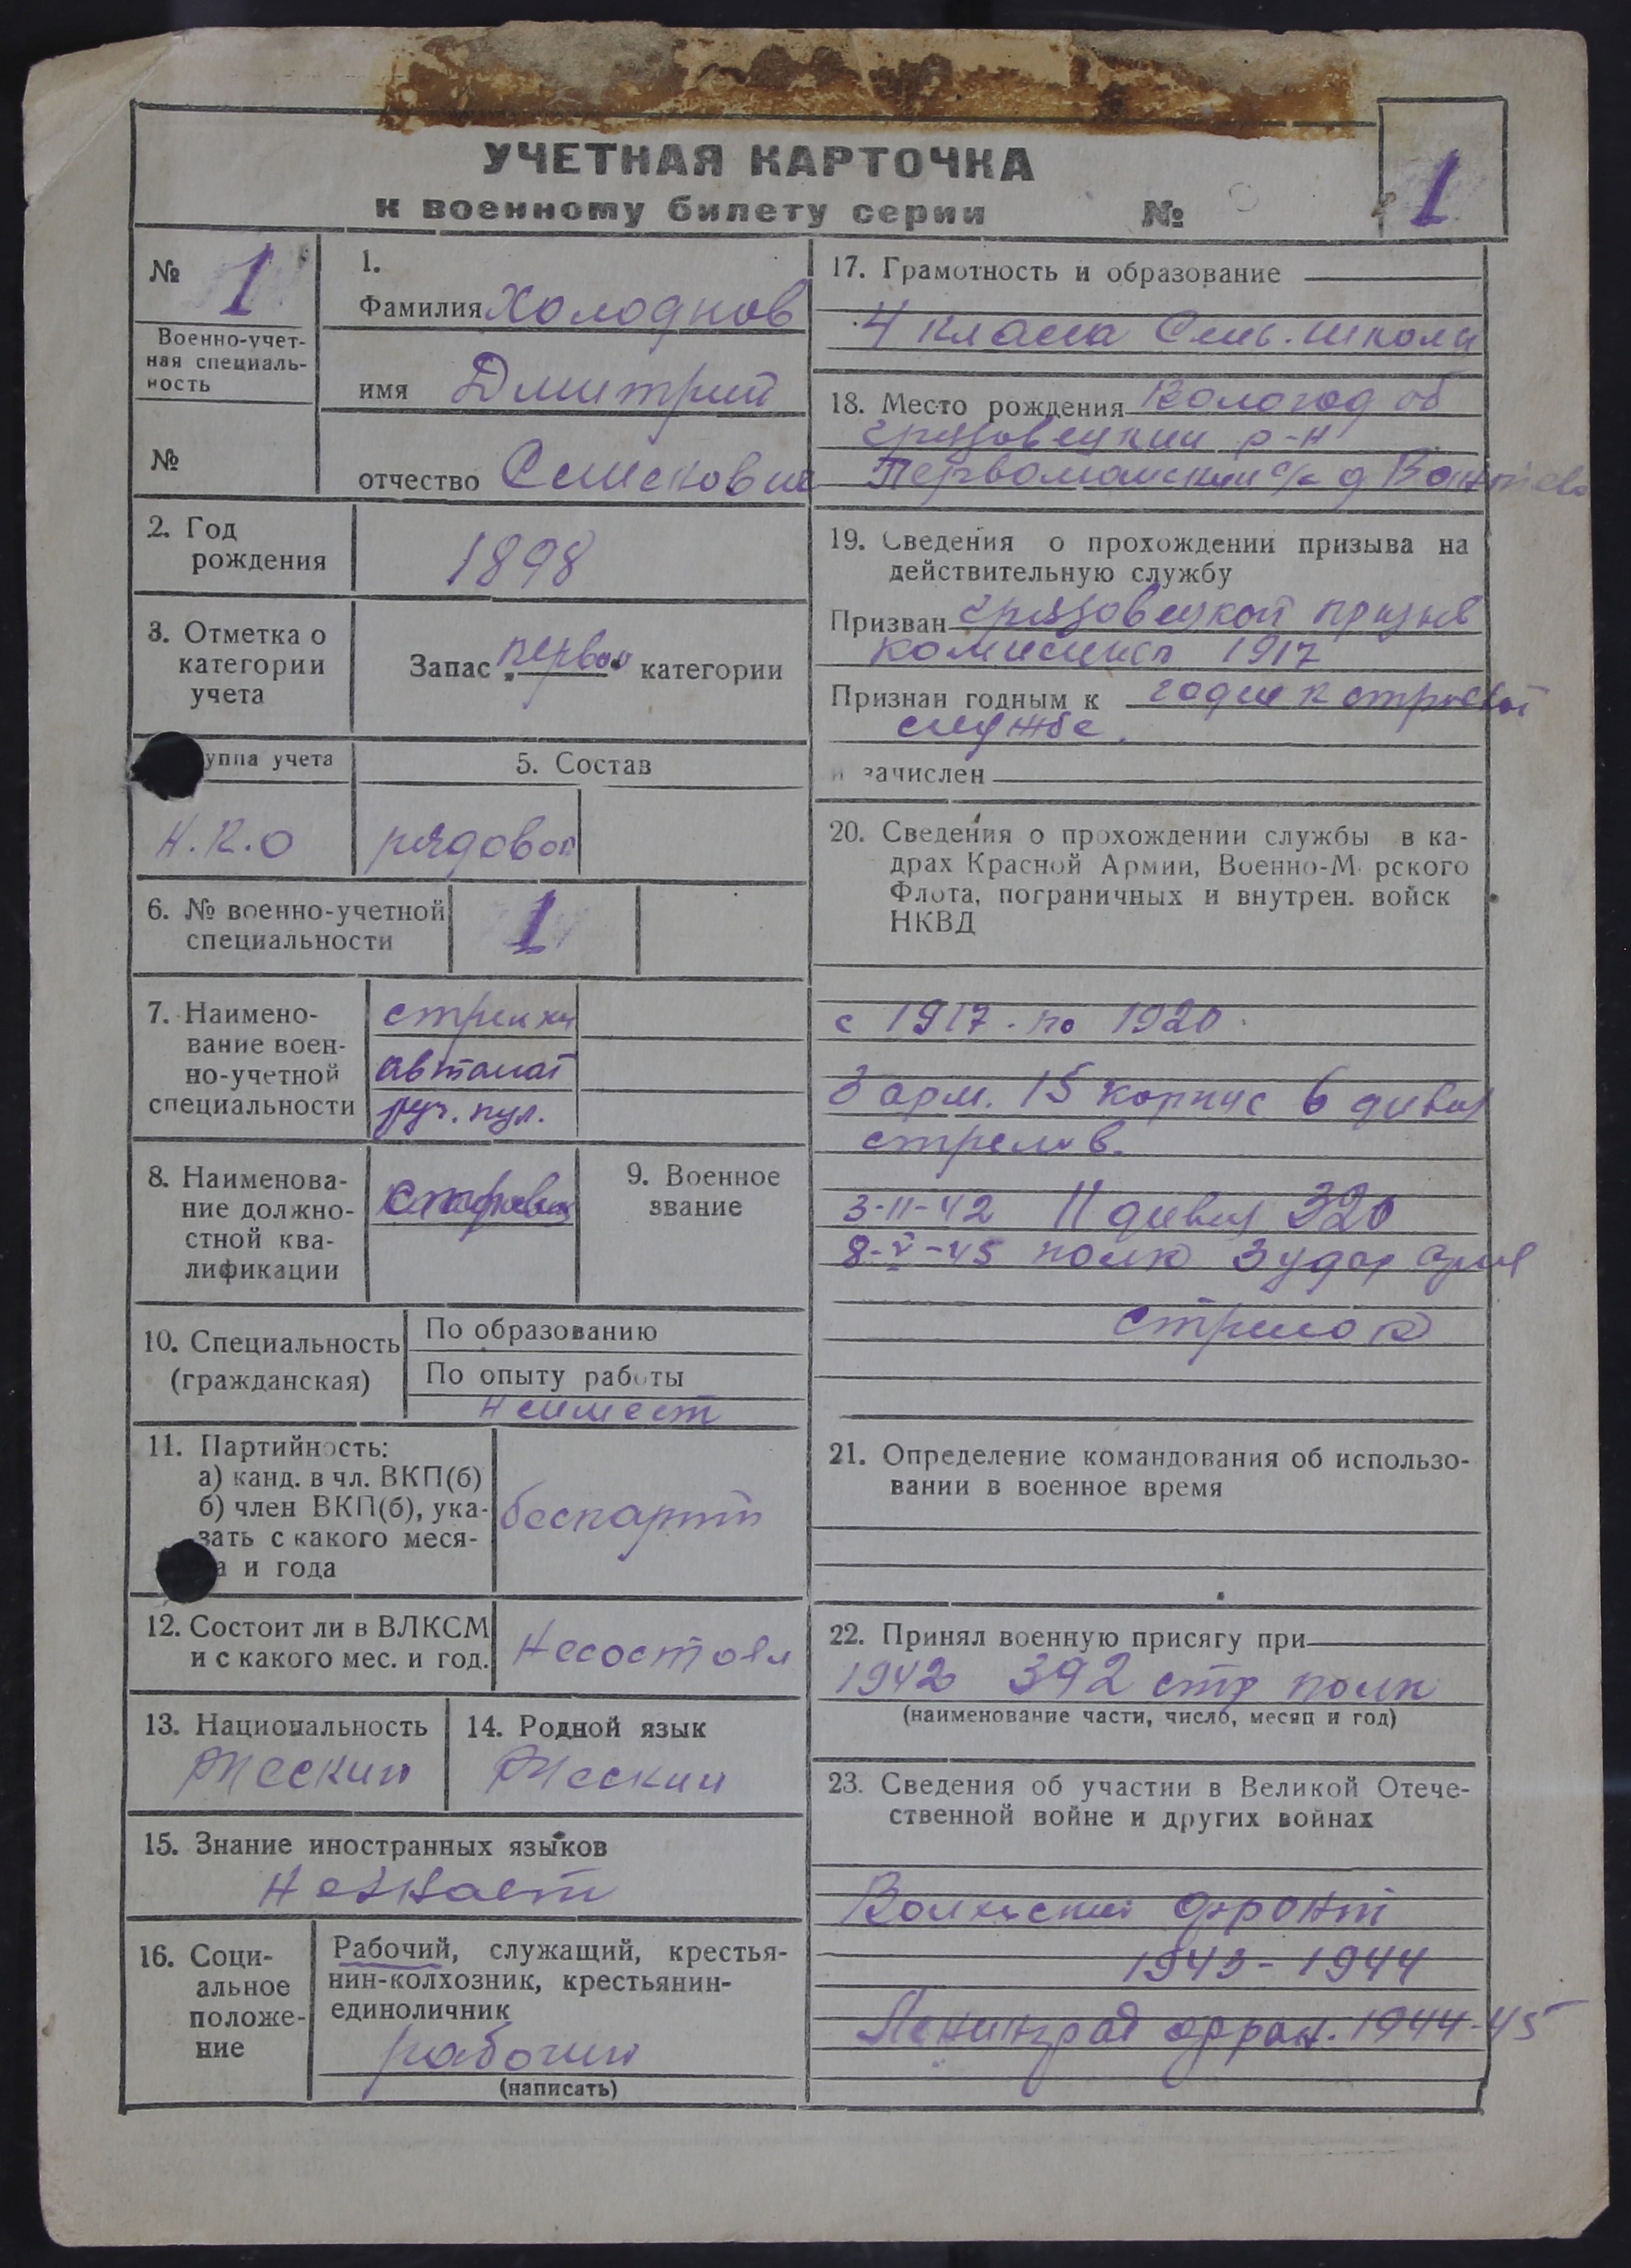 УЧЕТНАЯ КАРТОЧКА
к военному билету серии №
1
№ 1
Военно-учет-
ная специаль-
ность
№
1.
Фамилия Холоднов
имя Дмитрий
отчество
2. Год
рождения
1898
3. Отметка о
категории
учета
Запас первой категории
уппа учета
Н.К.О
5. Состав
рядовой
6. № военно-учетной
специальности
1
7. Наимено-
вание воен-
но-учетной
специальности
стрелки
автомат
руч. пул.
8. Наименова-
ние должно-
стной ква-
лификации
9. Военное
звание
10. Специальность
(гражданская)
По образованию
По опыту работы
неимеет
11. Партийность:
а) канд. в чл. ВКП(б)
б) член ВКП(б), ука-
зать с какого меся-
а и года
беспартп
12. Состоит ли в ВЛКСМ
и с какого мес. и год.
Несостоял
13. Национальность
Русский
14. Родной язык
Русский
15. Знание иностранных языков
Незнает
16. Соци-
альное
положе-
ние
Рабочий, служащий, крестья-
нин-колхозник, крестьянин-
единоличник
рабочий
(написать)
17. Грамотность и образование
4 класса Сель. школы
18. Место рождения Вологод об
Грязовецкий р-н
Первомайский с/с д
19. Сведения о прохождении призыва на
действительную службу
Призван Грязовецкой призыв
комиссией 1917
Признан годным к годен к строевой
службе.
и зачислен
20. Сведения о прохождении службы в ка-
драх Красной Армии, Военно-М рского
Флота, пограничных и внутрен. войск
НКВД
с 1917. по 1920.
3 арм. 15 корпус 6 дивиз
стрелков.
3-11-42 11 дивиз 320
8-V-45 полк 3 удар арм
стрелок
21. Определение командования об использо-
вании в военное время
22. Принял военную присягу при
1942 392 стр полк
(наименование части, число, месяц и год)
23. Сведения об участии в Великой Отече-
ственной войне и других войнах
Волховский фронт
1943-1944
Ленинград фрон. 1944-45